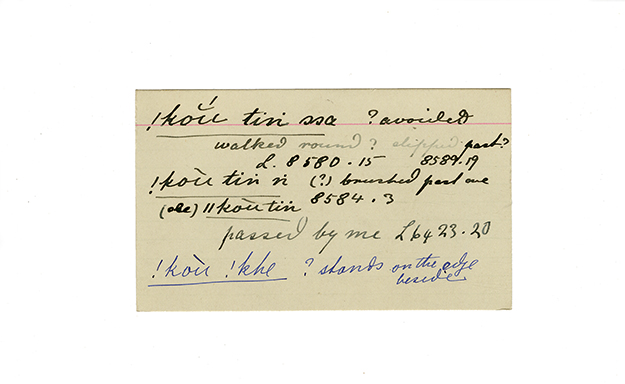 !kŏü tiṅ ssa ? avoided
walked round ? slipped past ?
L. 8580.15 8589.19
!kòü tiṅ ṅ (?) brushed past me
(see) ǁkòü tiṅ 8584.3
passed by me L 6423.20
!kòü !khe ? stands on the edge
beside